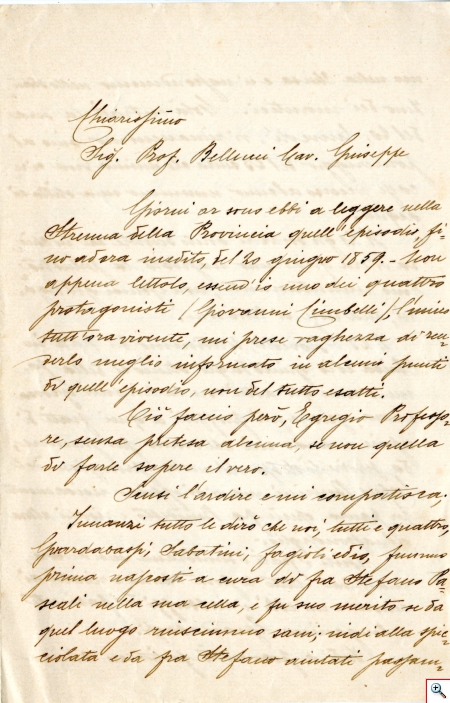 Chiarissimo
Sig. Prof. Bellucci Cav. Giuseppe
Giorni or sono ebbi a leggere nella
Strenna della Provincia quell'Episodio, fi-
no ad ora inedito, del 20 giugno 1859. - Non
appena lettolo, essend'io uno dei quattro
protagonisti (Giovanni Cimbelli), l'unico
tutt'ora vivente, mi prese vaghezza di ren-
derlo meglio informato in alcuni punti
di quell'episodio, non del tutto esatti.
Ciò faccio però, Egregio Professo-
re, senza pretesa alcuna, se non quella
di farle sapere il vero.
Scusi l'ardire e mi compatisca.
Innanzi tutto le dirò che noi, tutti e quattro,
Guardabassi, Sabatini, Fagioli ed io, fummo
prima nascosti a cura di fra Stefano Pa-
scali nella sua cella, e fu suo merito se da
quel luogo riuscimmo sani; indi alla spic-
ciolata e da fra Stefano aiutati passam-